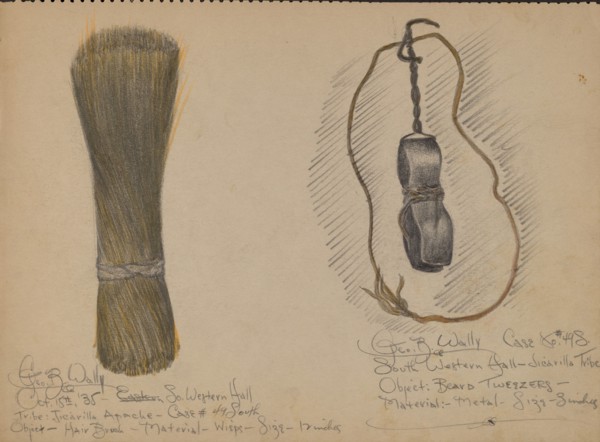 Geo. R. Wally
Oct. 15th, '35 - Eastern So. Western Hall
Tribe: Jicarilla Apache - Case # 49, South
Object - Hair Brush - Material - Wisps - Size - 12 inches
Geo. R. Wally Case No. # 49 S
South Western Hall - Jicarilla Tribe
Object: Beard Tweezers -
Material:- Metal - Size - 3 inches